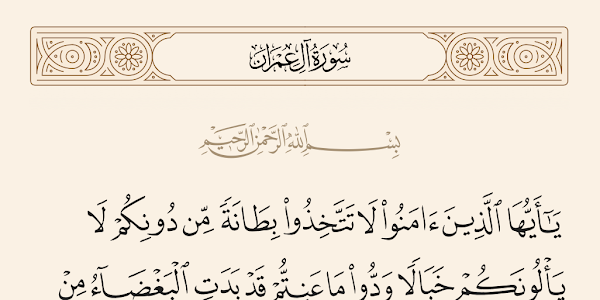 سُورَةُ آلِ عِمْرَان
بِسْمِ ٱللَّهِ ٱلرَّحْمَٰنِ ٱلرَّحِيمِ
يَـٰٓأَيُّهَا ٱلَّذِينَ ءَامَنُوا۟ لَا تَتَّخِذُوا۟ بِطَانَةً مِّن دُونِكُمْ لَا
يَأْلُونَكُمْ خَبَالًا وَدُّوا۟ مَا عَنِتُّمْ قَدْ بَدَتِ ٱلْبَغْضَآءُ مِنْ